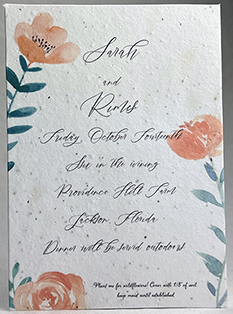 Sarah
and
Rimes
Friday October Fourteenth
Six in the evining
Providence Hill Farm
Jackson, Florida
Dinner will be servid outdoors
Plant me for wildflowers! Cover with 1/8 of soil
keep moist until established.